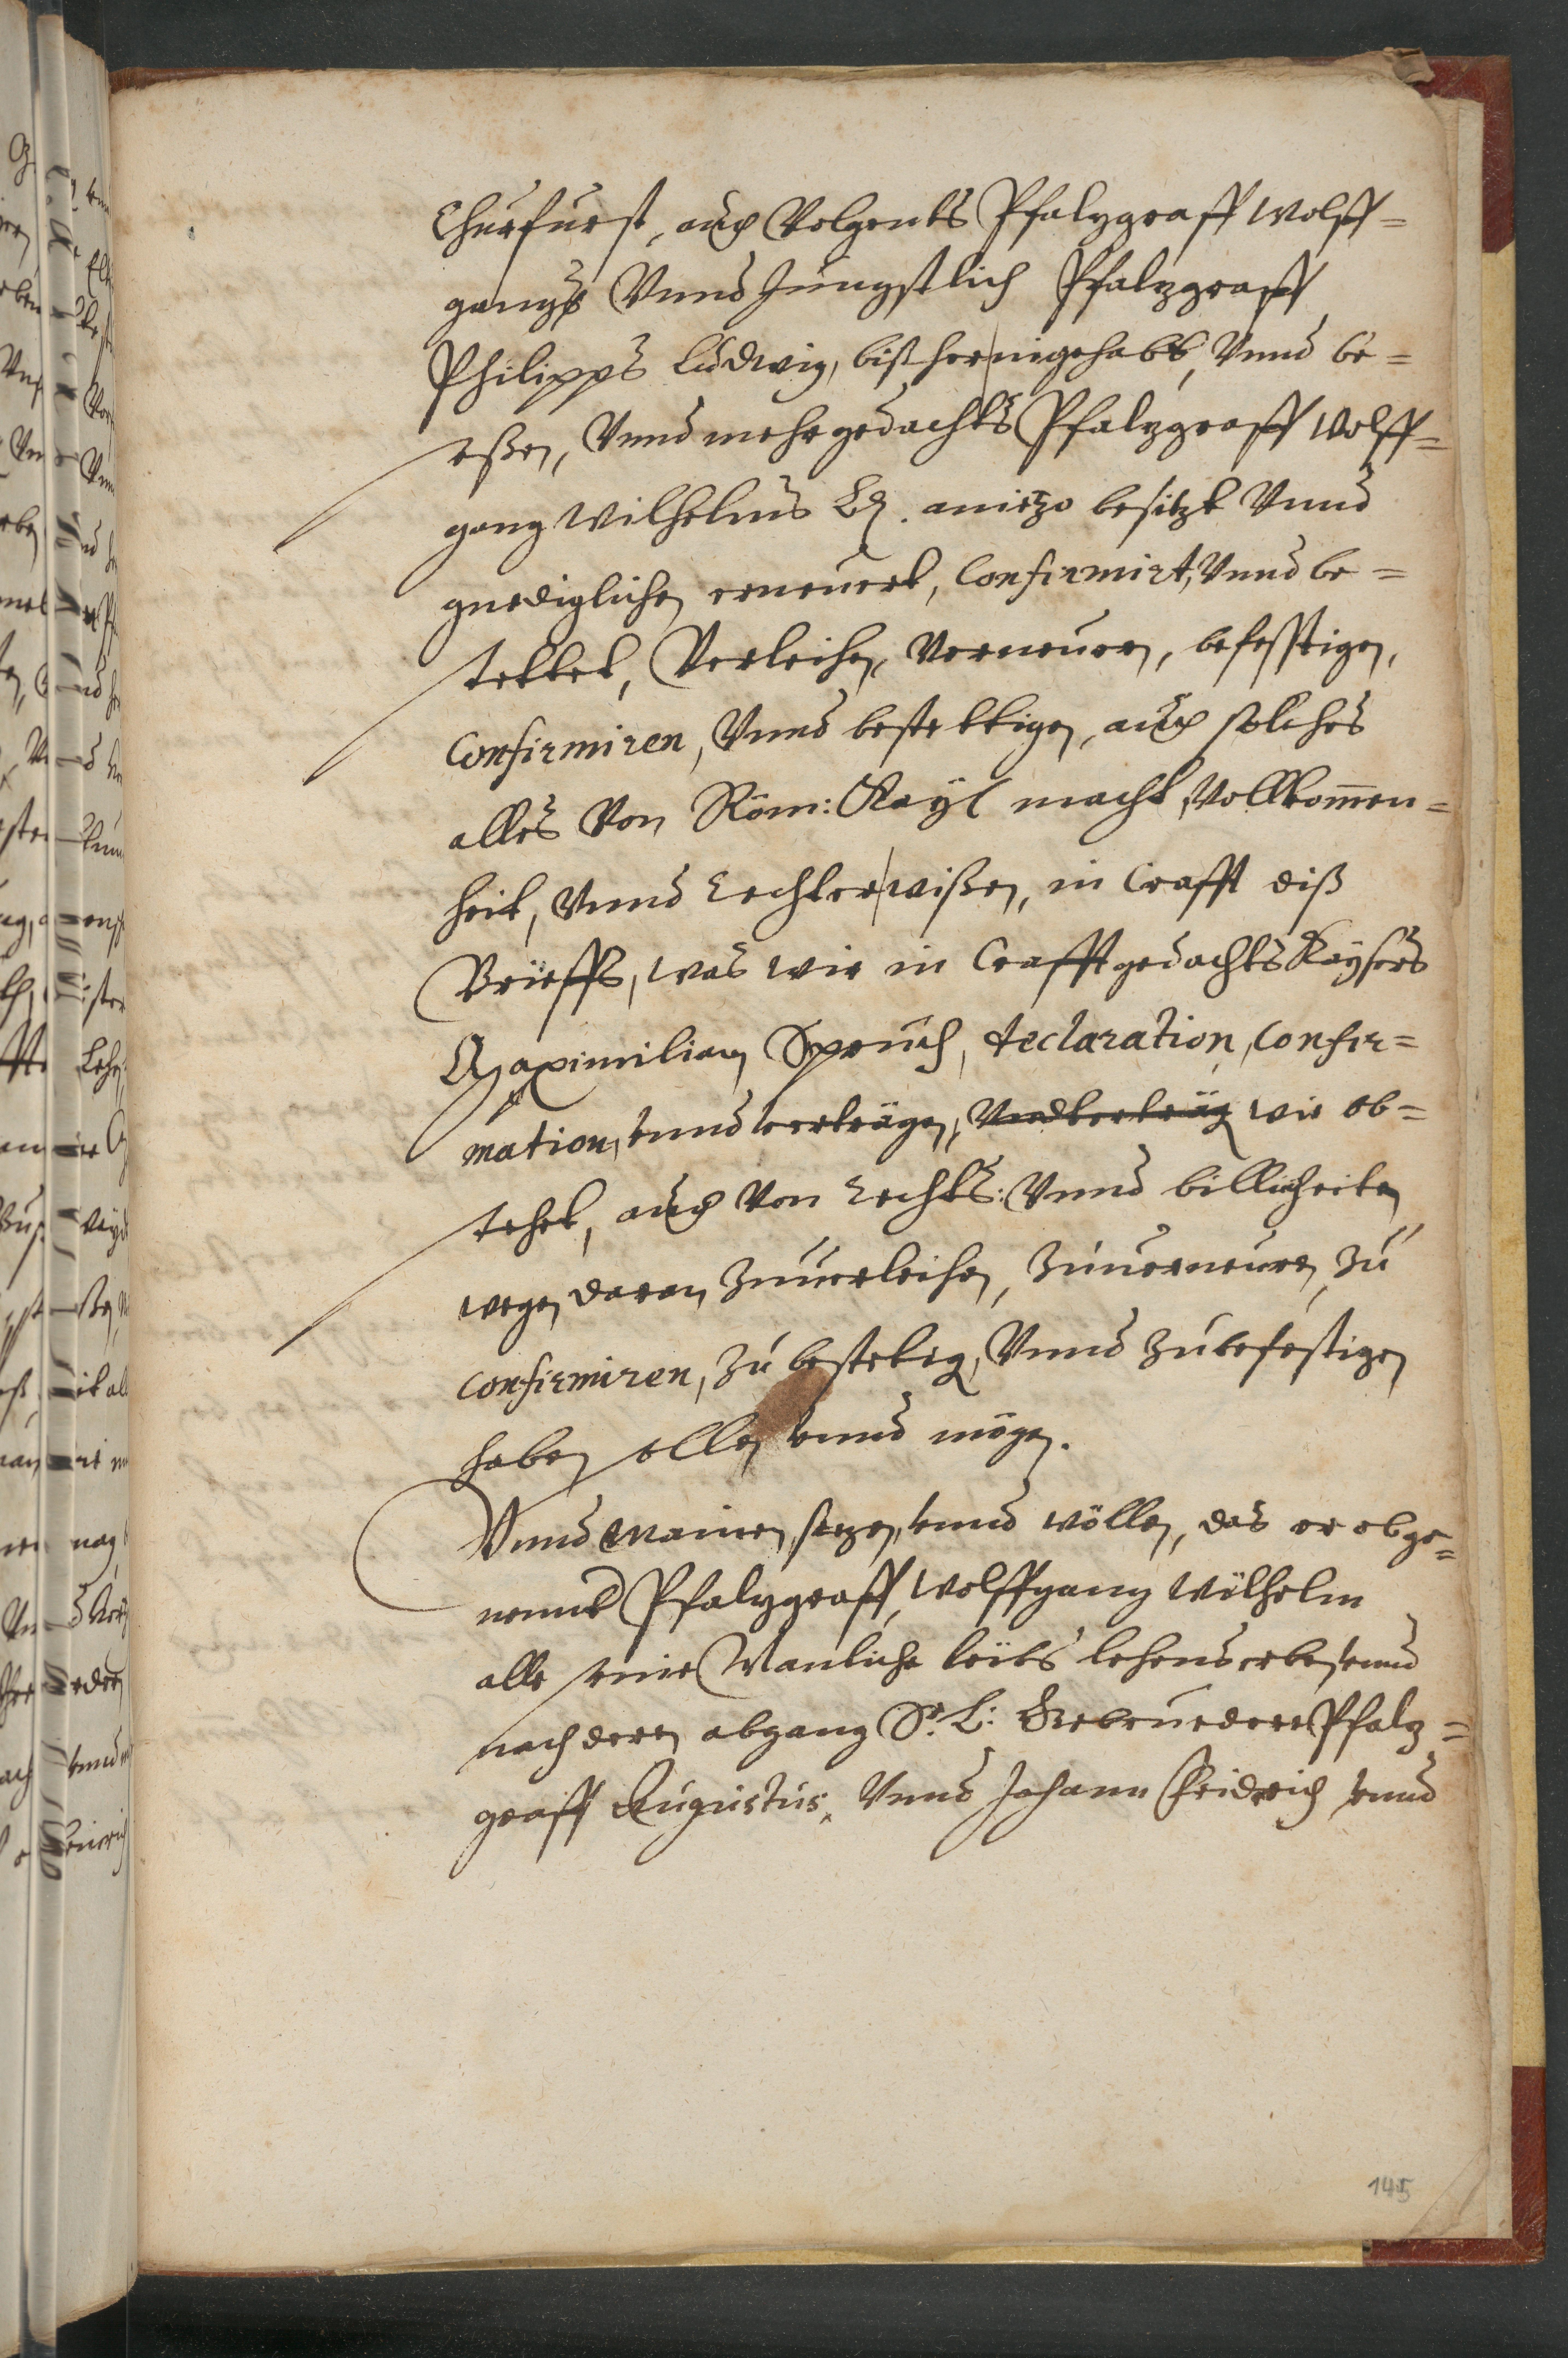 Churfurst, auch Volgents Pfalzgraff Wolff=
gangs Vnnd Jüngstlich Pfalzgraff
Philipps Ludwig, bißher inngehabt, Vnnd be=
seßen, Vnnd mehrgedachts Pfalzgraff Wolff=
gang Wilhelms Ld. aniezo besitzt Vnnd
gnediglichen erneuert, Confirmirt, Vnnd be=
stettet, Verleihen, Verneuren, befesstigen,
Confirmiren, Vnnd bestettigen, auch solches
alles Von Röm: Kayl macht, Vollkom̅en=
heit, Vnnd Rechter wißen, in Crafft diß
Brieffs, was wir in Crafft gedachts Kaysers
Maximilian Spruch, declaration, Confir=
mation, vnnd verträgen, Vndverträg wie ob=
stehet, auch Von Rechts: Vnnd billicheiten
wegen daran Zuuerleihen, Zuuerneuren, Zu
Confirmiren, Zu bestetigen, Vnnd Zubefestigen
haben sollen vnnd mögen.
Vnnd mainen, setzen, vnnd wöllen, das er obge=
nannt Pfalzgraff, Wolffgang Wilhelm
alle seine Manliche leibs lehens erben, vnnd
nach deren abgang Sr. L: Gebruedere Pfalz=
graff Augustus, Vnnd Johann Fridrich vnnd
145